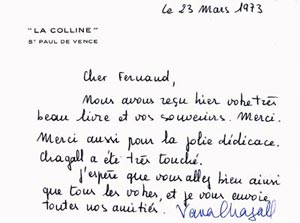 le 23 Mars 1973
"LA COLLINE"
St PAUL DE VENCE
Cher Fernand,
Nous avons reçu hier votre très
beau livre et vos souvenirs. Merci.
Merci aussi pour la jolie dédicace.
Chagall a été très touché.
J'espère que vous allez bien ainsi
que tous les votres, et je vous envoie
toutes nos amitiés.
Vava Chagall